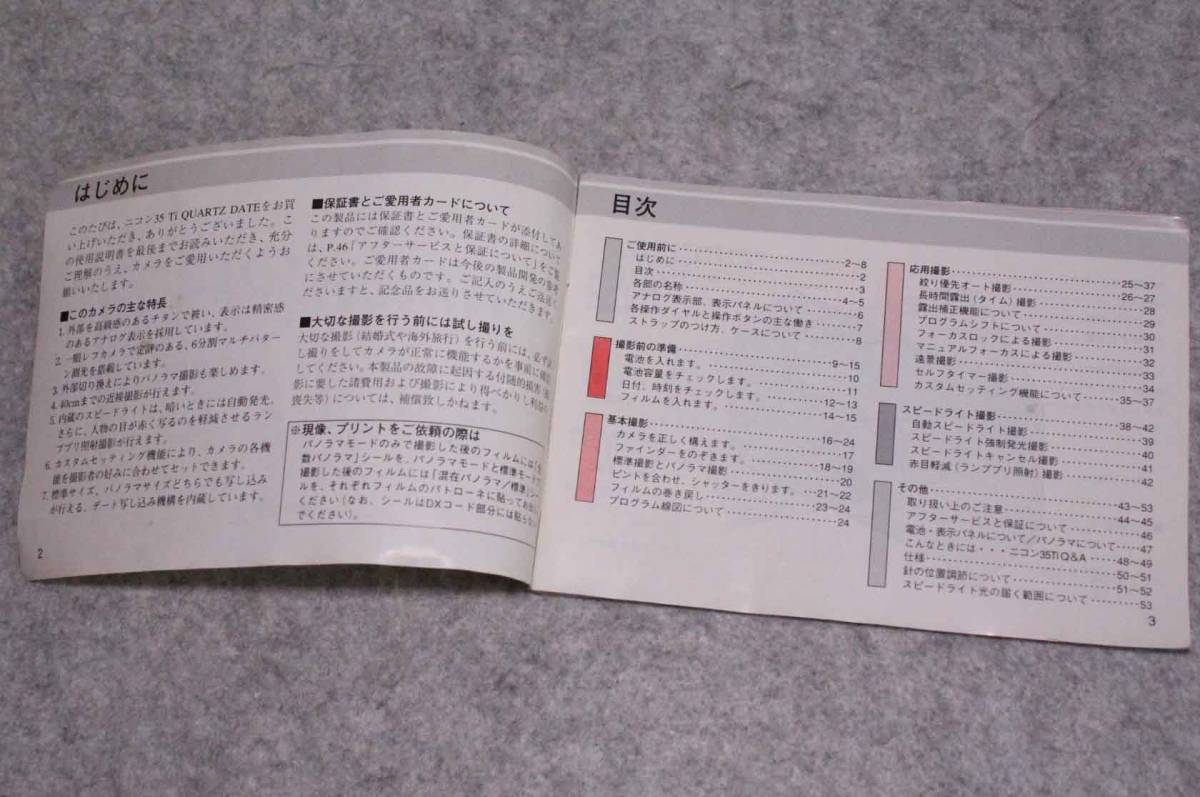 はじめに
このたびは、ニコン35 Ti QUARTZ DATEをお買
い上げいただき、ありがとうございました。こ
の使用説明書を最後までお読みいただき、充分
ご理解のうえ、カメラをご愛用いただくようお
願いいたします。
■このカメラの主な特長
1. 外部を高級感のあるチタンで被い、表示は精密感
のあるアナログ表示を採用しています。
2. 一眼レフカメラで定評のある、6分割マルチパター
ン測光を搭載しています。
3. 外部切り換えによりパノラマ撮影も楽しめます。
4. 40cmまでの近接撮影が行えます。
5. 内蔵のスピードライトは、暗いときには自動発光。
さらに、人物の目が赤く写るのを軽減させるラン
ププリ照射撮影が行えます。
6. カスタムセッティング機能により、カメラの各機
能を撮影者の好みに合わせてセットできます。
7. 標準サイズ、パノラマサイズどちらでも写し込み
が行える、デート写し込み機構を内蔵しています。
2
■保証書とご愛用者カードについて
この製品には保証書とご愛用者カードが添付してあ
りますのでご確認ください。保証書の詳細につい
は、P.46「アフターサービスと保証について」をご覧
ください。ご愛用者カードは今後の製品開発の参考
にさせていただくものです。ご記入のうえご返送く
ださいますと、記念品をお送りさせていただきます。
■大切な撮影を行う前には試し撮りを
大切な撮影(結婚式や海外旅行)を行う前には、必ず試
し撮りをしてカメラが正常に機能するかを事前に確認
してください。本製品の故障に起因する付随的損害(撮
影に要した諸費用および撮影により得べかりし利益の
喪失等)については、補償致しかねます。
※現像、プリントをご依頼の際は
パノラマモードのみで撮影した後のフィルムには「全
数パノラマ」シールを、パノラマモードと標準モードで
撮影した後のフィルムには「混在パノラマ/標準」シー
ルを、それぞれフィルムのパトローネに貼ってお出し
ください(なお、シールはDXコード部分には貼らない
でください)。
目次
ご使用前に 2～8
はじめに 2
目次 3
各部の名称 4～5
アナログ表示部、表示パネルについて 6
各操作ダイヤルと操作ボタンの主な働き 7
ストラップのつけ方、ケースについて 8
撮影前の準備 9～15
電池を入れます。 10
電池容量をチェックします。 11
日付、時刻をチェックします。 12～13
フィルムを入れます。 14～15
基本撮影 16～24
カメラを正しく構えます。 17
ファインダーをのぞきます。 18～19
標準撮影とパノラマ撮影 20
ピントを合わせ、シャッターをきります。 21～22
フィルムの巻き戻し 23～24
プログラム線図について 24
応用撮影 25～37
絞り優先オート撮影 26～27
長時間露出(タイム)撮影 28
露出補正機能について 29
プログラムシフトについて 30
フォーカスロックによる撮影 31
マニュアルフォーカスによる撮影 32
遠景撮影 33
セルフタイマー撮影 34
カスタムセッティング機能について 35～37
スピードライト撮影 38～42
自動スピードライト撮影 39
スピードライト強制発光撮影 40
スピードライトキャンセル撮影 41
赤目軽減(ランププリ照射)撮影 42
その他 43～53
取り扱い上のご注意 44～45
アフターサービスと保証について 46
電池・表示パネルについて/パノラマについて 47
こんなときには・・・ニコン35Ti Q&A 48～49
仕様 50～51
針の位置調節について 51～52
スピードライト光の届く範囲について 53
3